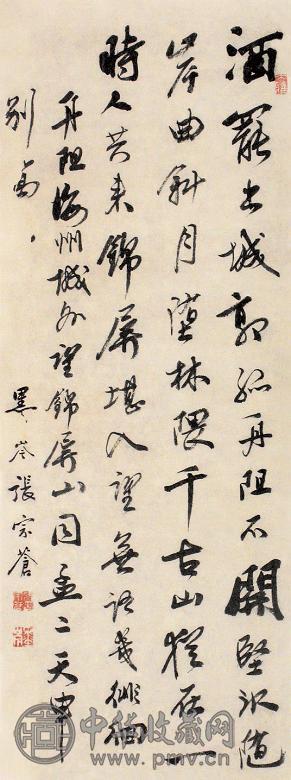 酒罷出城郭孤舟阻不開堅氷随
岸曲斜月堕林隈千古山猶在一
時人共来錦屏堪入望無语幾徘徊
舟阻海州城外望錦屏山同孟二天章
别駕
墨岑張宗蒼
中华收藏网
www.pmv.cn